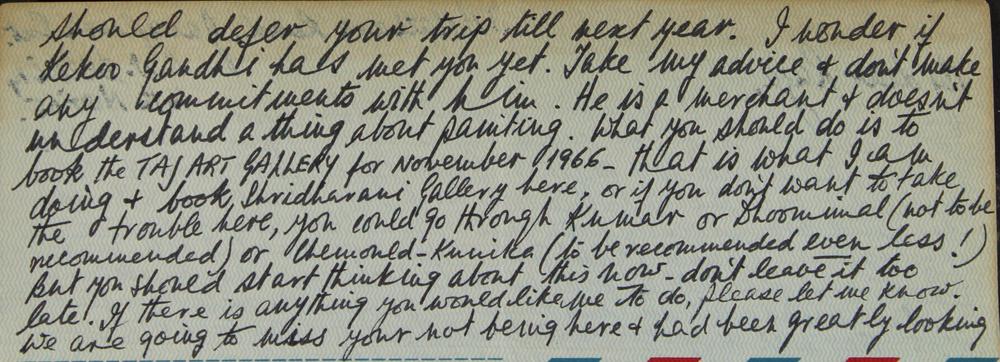 should defer your trip till next year. I wonder if
Kekoo Gandhi has met you yet. Take my advice & don't make
any commitments with him. He is a merchant & doesn't
understand a thing about painting. What you should do is to
book the TAJ ART GALLERY for November 1966 - that is what I am
doing & book Shridharani Gallery here, or if you don't want to take
the trouble here, you could go through Kumar or Dhoomimal (not to be
recommended) or Chemould-Kunika (to be recommended even less!)
But you should start thinking about this now - don't leave it too
late. If there is anything you would like me to do, please let me know.
We are going to miss your not being here & had been greatly looking